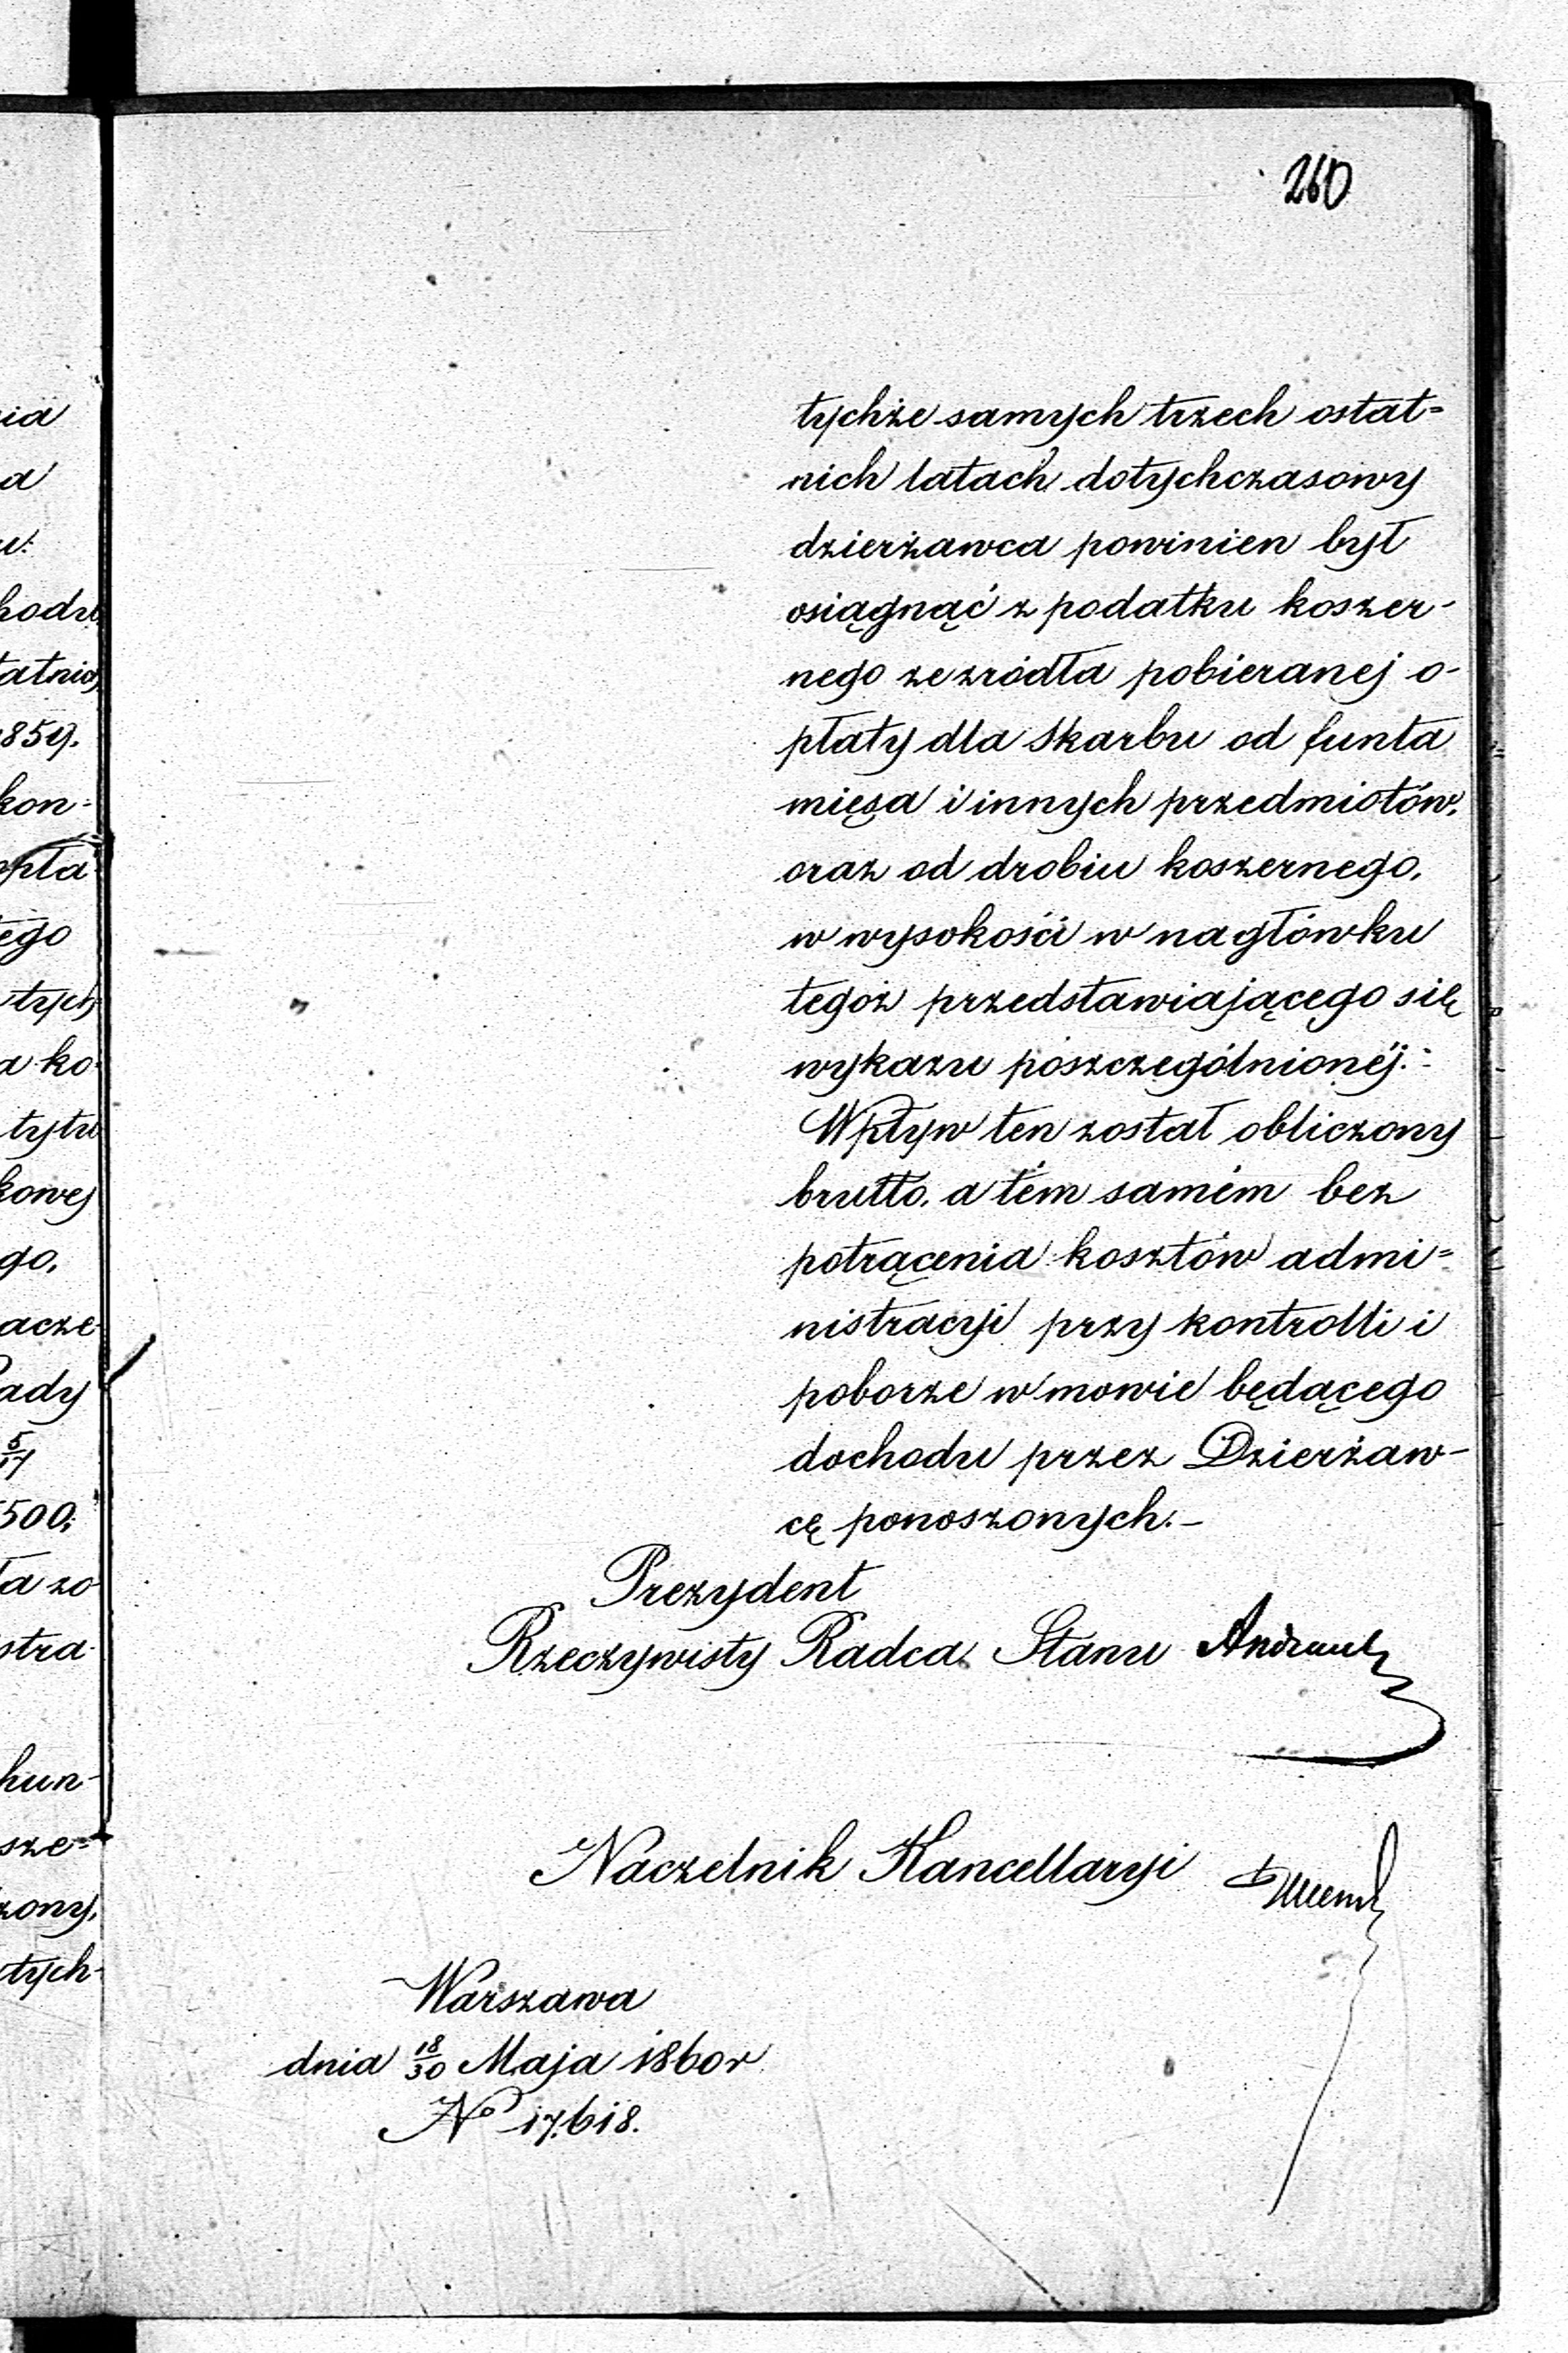 260
tychże samych trzech ostat=
nich latach dotychczasowy
dzierżawca powinien był
osiągnąć z podatku koszer-
nego ze źródła pobieranej o-
płaty dla Skarbu od funta
mięsa i innych przedmiotów,
oraz od drobiu koszernego,
w wysokości w nagłówku
tegoż przedstawiającego się
wykazu poszczególnionéj.-
Wpływ ten został obliczony
brutto, a tém samém bez
potrącenia kosztów admi=
nistracyi przy kontrolli i
poborze w mowie będącego
dochodu przez Dzierżaw-
cę ponoszonych.-
Prezydent
Rzeczywisty Radca Stanu Andrault
Naczelnik Kancellaryi
Warszawa
dnia 18/30 Maja 1860 r
No 17,618.
ia
a
u:
hodu
tatnich
1859.
kon=
opła
tego
tych
a ko
tytu
kowej
go,
acze
Rady
5/17
500,
ła zo
stra
hun-
sze=
zony,
tych-